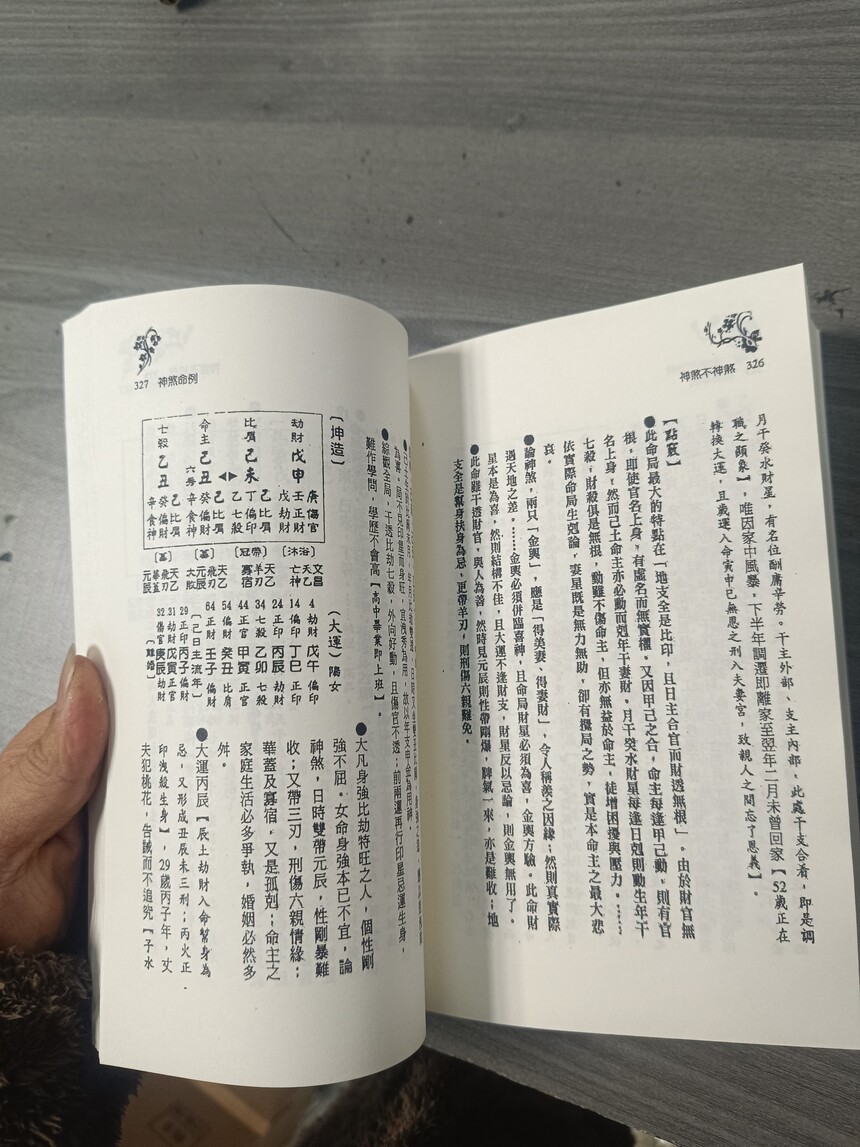 神煞不神煞 326
月干癸水財星，有名位酬庸辛勞。干主外部、支主內部，此處干支合看，即是調
職之顯象】，唯因家中風暴，下半年調遷即離家至翌年二月未曾回家【52歲正在
轉換大運，且歲運入命寅申巳無恩之刑入夫妻宮，致親人之間忘了恩義】。
【點竅】
●此命局最大的特點在「地支全是比印，且日主合官而財透無根」。由於財官無
根，即使官名上身，有虛名而無實權。又因甲己之合，命主每逢甲己動，則有官
名上身，然而己土命主亦必動而剋年干妻財。月干癸水財星每逢日剋則動生年干
七殺，財殺俱是無根，動雖不傷命主，但亦無益於命主，徒增困擾與壓力。……
依實際命局生剋論，妻星既是無力無助，卻有攪局之勢，實是本命主之最大悲
哀。
●論神煞，兩只「金輿」，應是「得美妻、得妻財」，令人稱羨之因緣；然則真實際
遇天地之差。……金輿必須併臨喜神，且命局財星必須為喜，金輿方驗。此命財
星本是為喜，然則結構不佳，且大運不逢財支，財星反以忌論，則金輿無用了。
●此命雖干透財官，與人為善，然時見元辰則性帶剛爆，脾氣一來，亦是難收；地
支全是幫身扶身為忌，更帶羊刃，則刑傷六親難免。
327 神煞命例
【坤造】
劫財 戊申 庚傷官 壬正財 戊劫財 〔沐浴〕 文昌 天乙 亡神
比肩 己未 己比肩 丁偏印 乙七殺 〔冠帶〕 天乙 羊刃 寡宿
命主 己丑 六秀 己比肩 癸偏財 辛食神 〔墓〕 天乙 飛刃 元辰 大敗
七殺 乙丑 己比肩 癸偏財 辛食神 〔墓〕 天乙 飛刃 華蓋 元辰
（大運）陽女
4 劫財 戊午 偏印
14 偏印 丁巳 正印
24 正印 丙辰 劫財
34 七殺 乙卯 七殺
44 正官 甲寅 正官
54 偏財 癸丑 比肩
64 正財 壬子 偏財
〔己日主流年〕
29 正印 丙子 偏財
31 劫財 戊寅 正官
32 傷官 庚辰 劫財
〔離婚〕
為審。局不見印星而身旺，宜洩秀為用，故以年支申金為用神。
●綜觀全局，干透比劫七殺，外向好動，且傷官不透；前兩運再行印星忌運生身，
難作學問，學歷不會高【高中畢業即上班】。
●大凡身強比劫特旺之人，個性剛
強不屈。女命身強本已不宜，論
神煞，日時雙帶元辰，性剛暴難
收；又帶三刃，刑傷六親情緣；
華蓋及寡宿，又是孤剋；命主之
家庭生活必多爭執，婚姻必然多
舛。
●大運丙辰【辰土劫財入命幫身為
忌，又形成丑辰未三刑；丙火正
印洩殺生身】，29歲丙子年，丈
夫犯桃花，告誡而不追究【子水